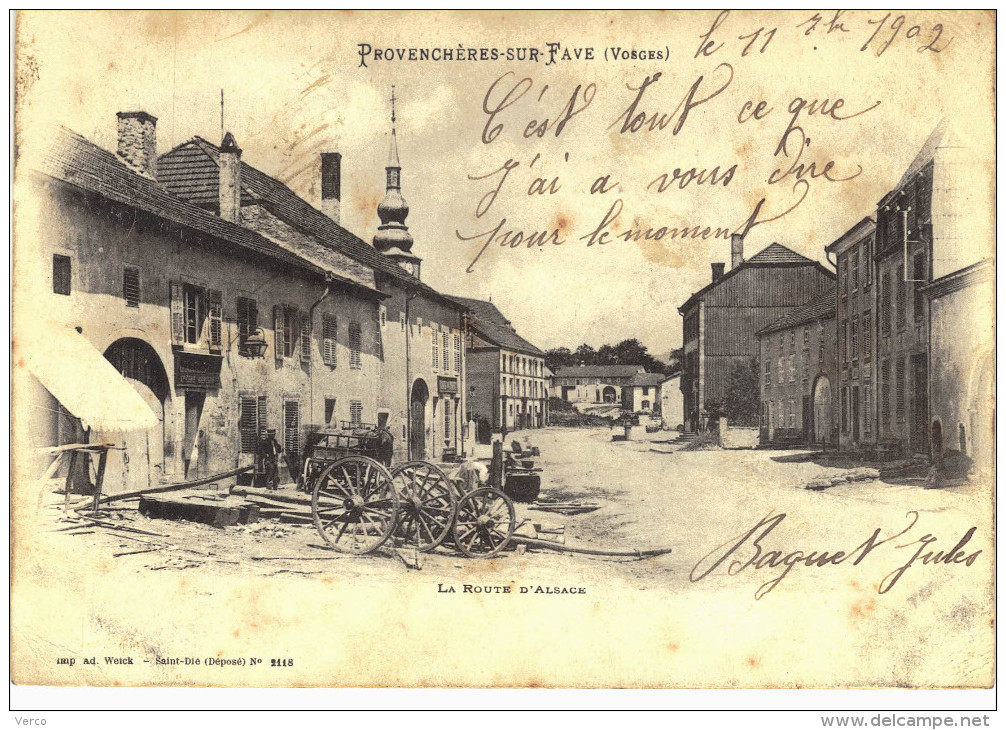 PROVENCHÈRES-SUR-FAVE (VOSGES)
le 11 7bre 1902
C'est tout ce que
J'ai a vous dire
pour le moment
Baguet Jules
LA ROUTE D'ALSACE
Imp Ad. Weick - Saint-Dié (Déposé) No 2118
Verco
www.delcampe.net